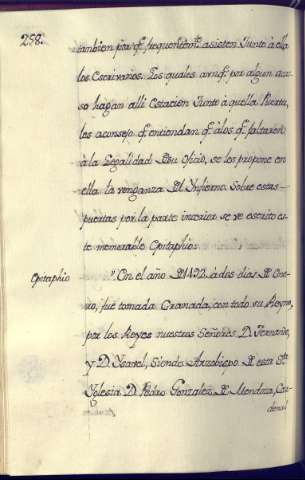 258.
tambien p.r q.e frequentem.te asisten Junto à ella
los Escrivanos. Los quales aunq.e por algun aca-
so hagan alli Estacion Junto à quella Puerta,
les aconsejo q.e entiendan q.e à los q.e faltaren
à la Legalidad de su Oficio, se los propone en
ella la venganza del Ynfierno. Sobre estas
puertas por la parte interior se ve escrito es-
te memorable Epitaphio.
Epitaphio
"En el año de 1492. à dos dias de Ene-
ro, fue tomada Granada, con todo su Reyno,
por los Reyes nuestros Señores D. Fernando,
y D. Ysavel, Siendo Arzobispo de esta S.ta
Yglesia D. Pedro Gonzalez de Mendoza, Car-
denal